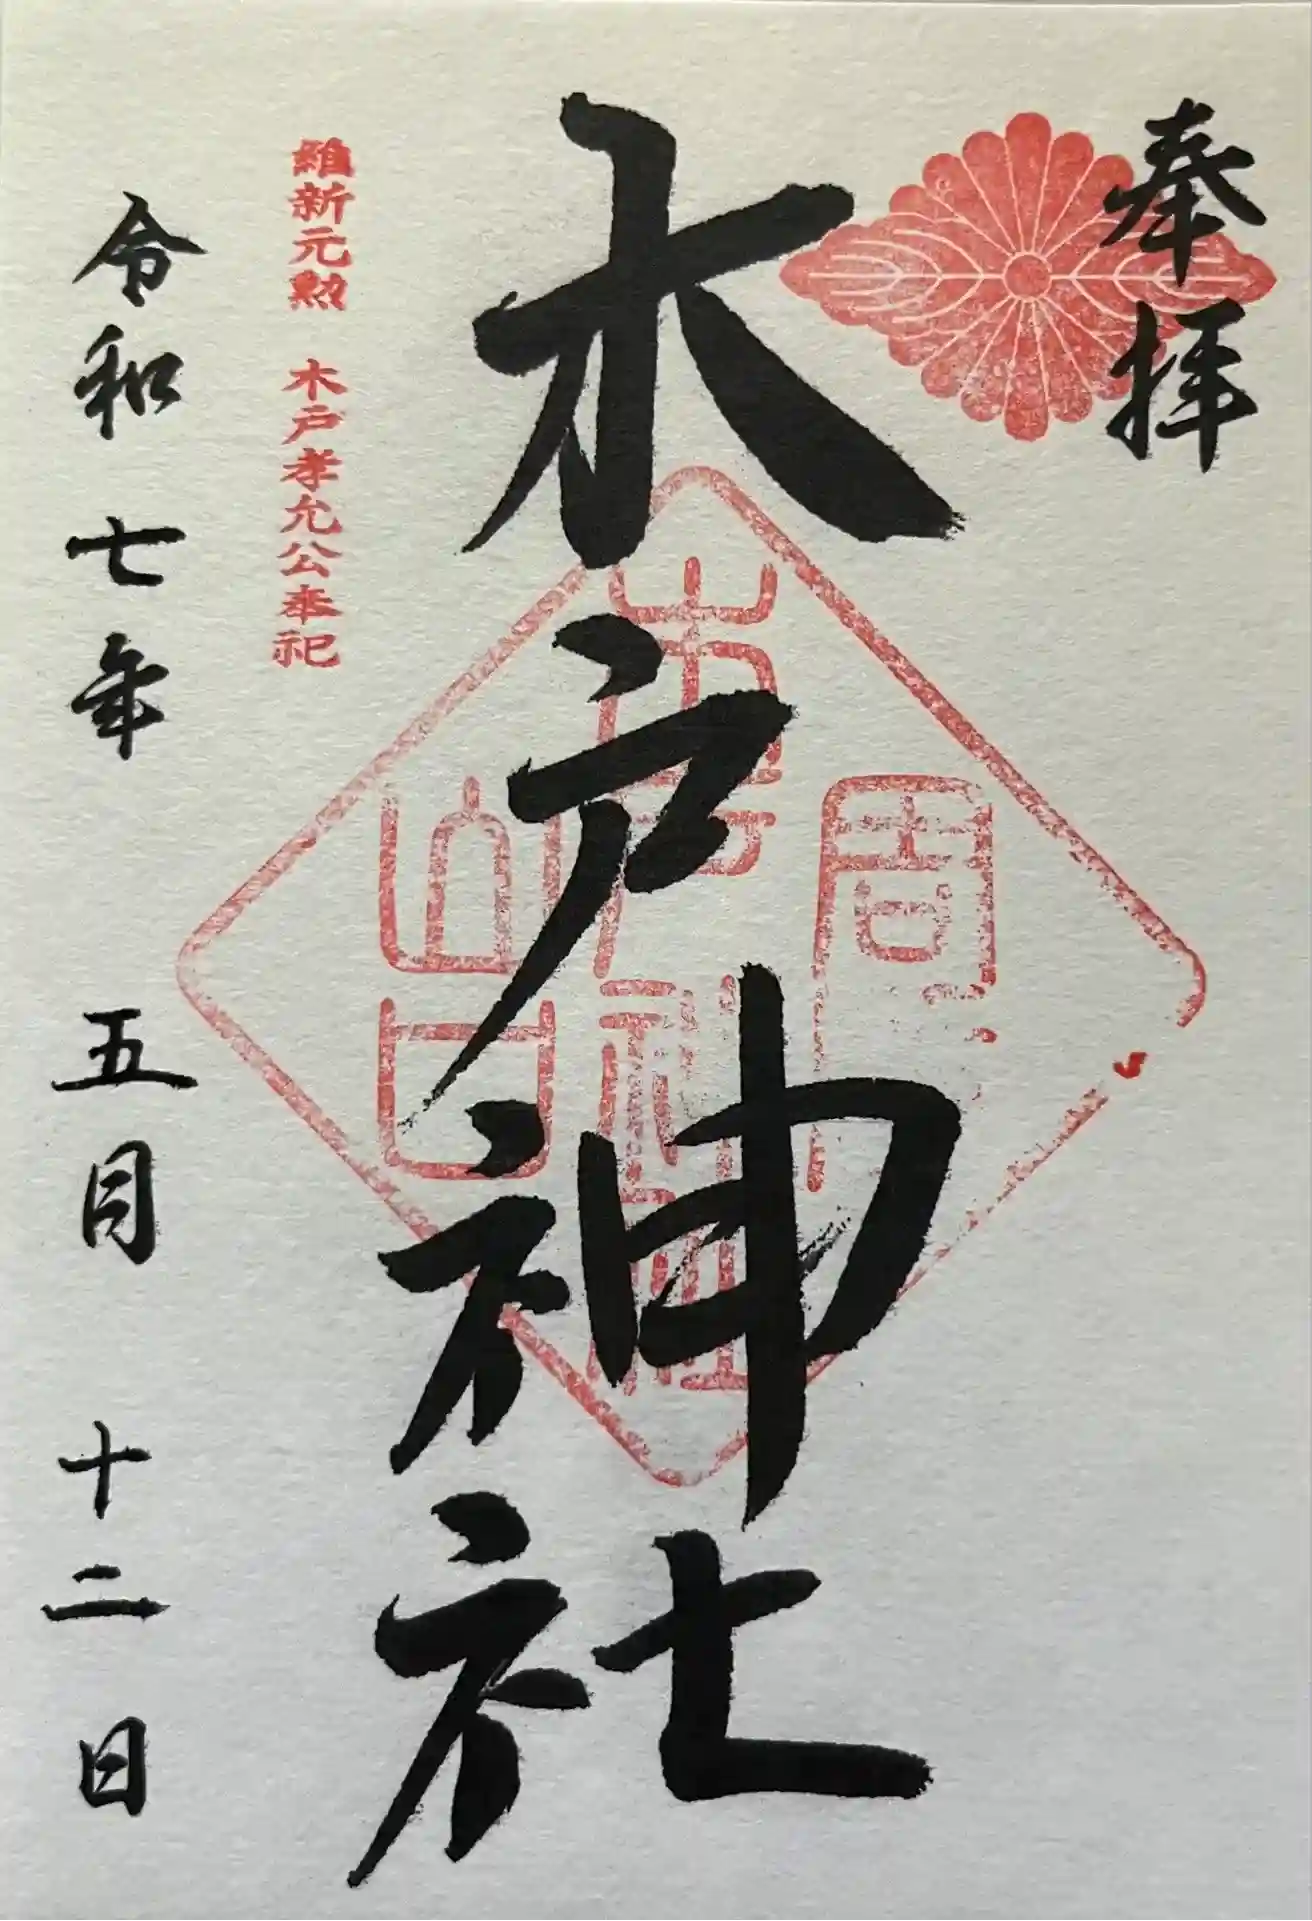 奉拝
木戸神社
維新元勲 木戸孝允公奉祀
令和七年 五月 十二日